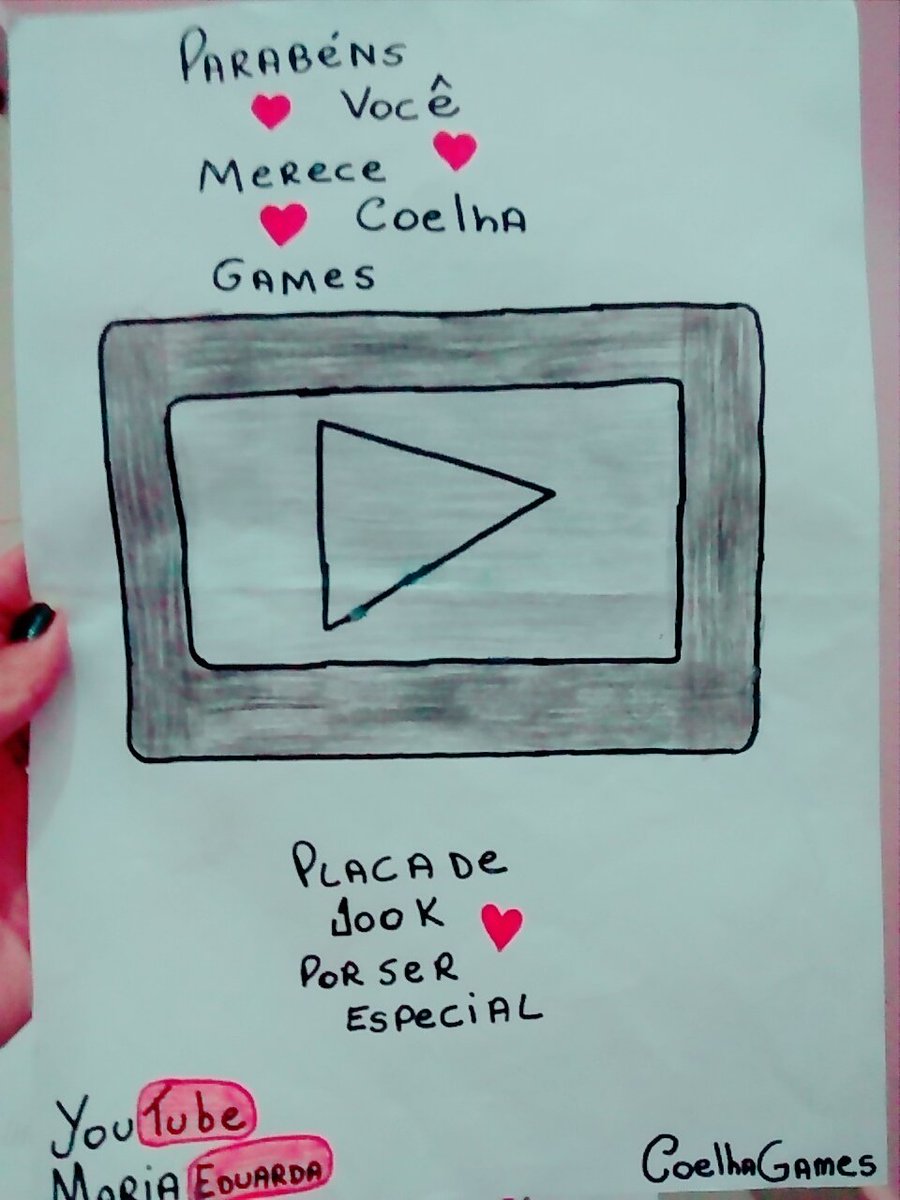 PARABéNS
Você
MeRece
CoelhA
GAMes
PLACA De
100K
PoR SeR
ESPeciAL
YouTube
MARiA EDUARDA
CoelhaGames